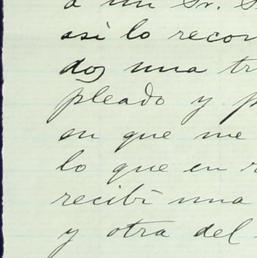 a un Sr. S
así lo recor
dos una tr
pleado y p
en que me
lo que en r
recibí una
y otra del